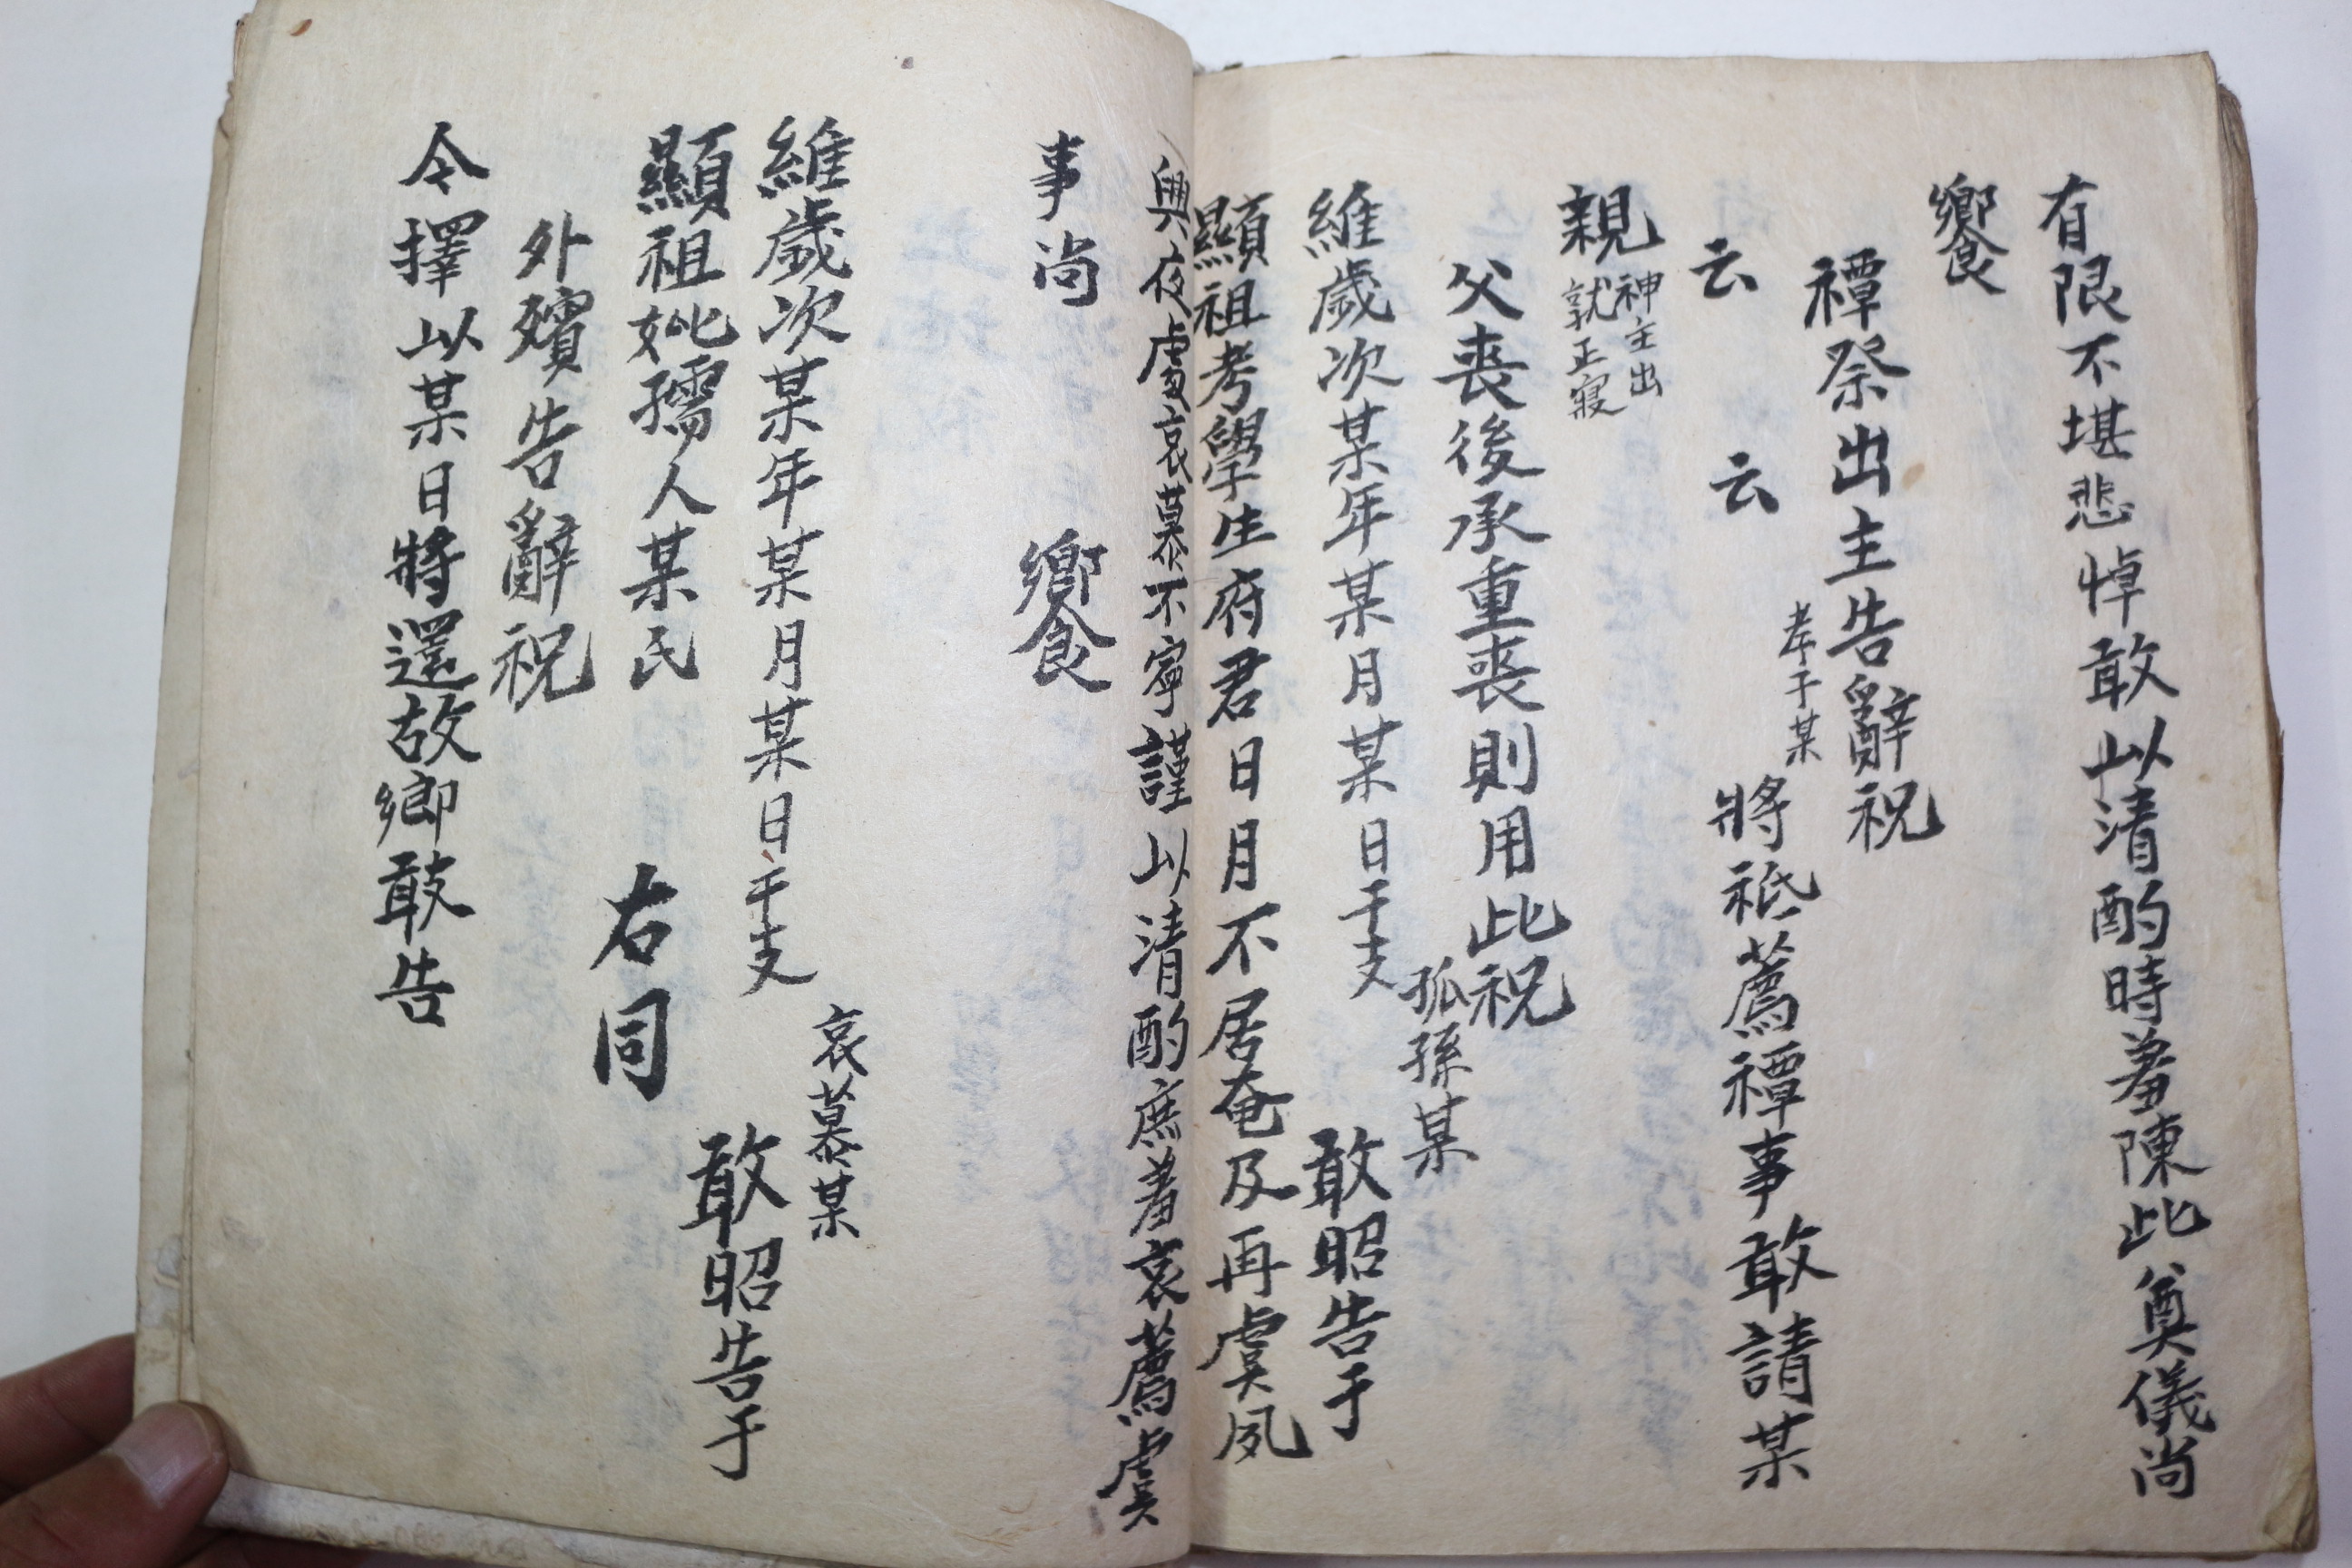 有限不堪悲悼敢以清酌時羞陳此奠儀尚
饗
禫祭出主告辭祝
云云 孝子某 將祗薦禫事敢請某
親 神主出就正寢
父喪後承重喪則用此祝
維歲次某年某月某日干支 孤孫某 敢昭告于
顯祖考學生府君日月不居奄及再虞夙
興夜處哀慕不寧謹以清酌庶羞哀薦虞
事尚 饗
維歲次某年某月某日干支 哀慕某 敢昭告于
顯祖妣孺人某氏 右同
外殯告辭祝
今擇以某日將還故鄉敢告